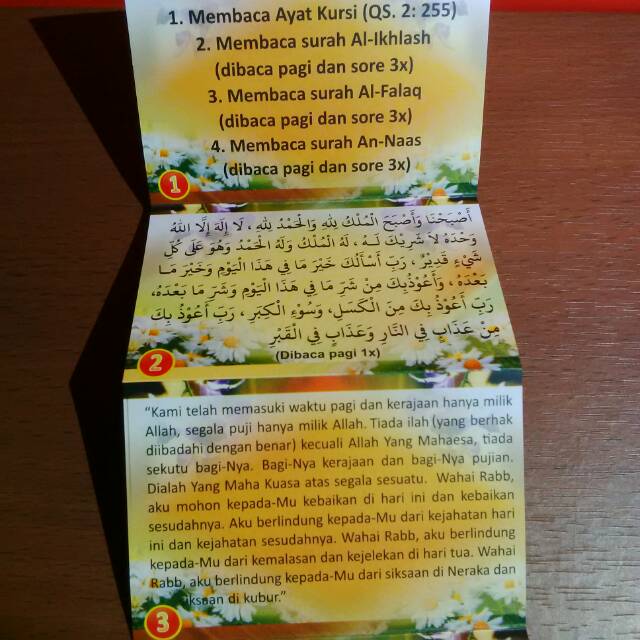 1. Membaca Ayat Kursi (QS. 2: 255)
2. Membaca surah Al-Ikhlash
(dibaca pagi dan sore 3x)
3. Membaca surah Al-Falaq
(dibaca pagi dan sore 3x)
4. Membaca surah An-Naas
(dibaca pagi dan sore 3x)
1
أَصْبَحْنَا وَأَصْبَحَ الْمُلْكُ لِلَّهِ وَالْحَمْدُ لِلَّهِ، لَا إِلَهَ إِلَّا اللهُ
وَحْدَهُ لَا شَرِيْكَ لَهُ، لَهُ الْمُلْكُ وَلَهُ الْحَمْدُ وَهُوَ عَلَى كُلِّ
شَيْءٍ قَدِيْرٌ، رَبِّ أَسْأَلُكَ خَيْرَ مَا فِي هَذَا الْيَوْمِ وَخَيْرَ مَا
بَعْدَهُ، وَأَعُوْذُبِكَ مِنْ شَرِّ مَا فِي هَذَا الْيَوْمِ وَشَرِّ مَا بَعْدَهُ،
رَبِّ أَعُوْذُ بِكَ مِنَ الْكَسَلِ، وَسُوْءِ الْكِبَرِ، رَبِّ أَعُوْذُ بِكَ
مِنْ عَذَابٍ فِي النَّارِ وَعَذَابٍ فِي الْقَبْرِ
(Dibaca pagi 1x)
2
“Kami telah memasuki waktu pagi dan kerajaan hanya milik
Allah, segala puji hanya milik Allah. Tiada ilah (yang berhak
diibadahi dengan benar) kecuali Allah Yang Mahaesa, tiada
sekutu bagi-Nya. Bagi-Nya kerajaan dan bagi-Nya pujian.
Dialah Yang Maha Kuasa atas segala sesuatu. Wahai Rabb,
aku mohon kepada-Mu kebaikan di hari ini dan kebaikan
sesudahnya. Aku berlindung kepada-Mu dari kejahatan hari
ini dan kejahatan sesudahnya. Wahai Rabb, aku berlindung
kepada-Mu dari kemalasan dan kejelekan di hari tua. Wahai
Rabb, aku berlindung kepada-Mu dari siksaan di Neraka dan
iksaan di kubur.”
3